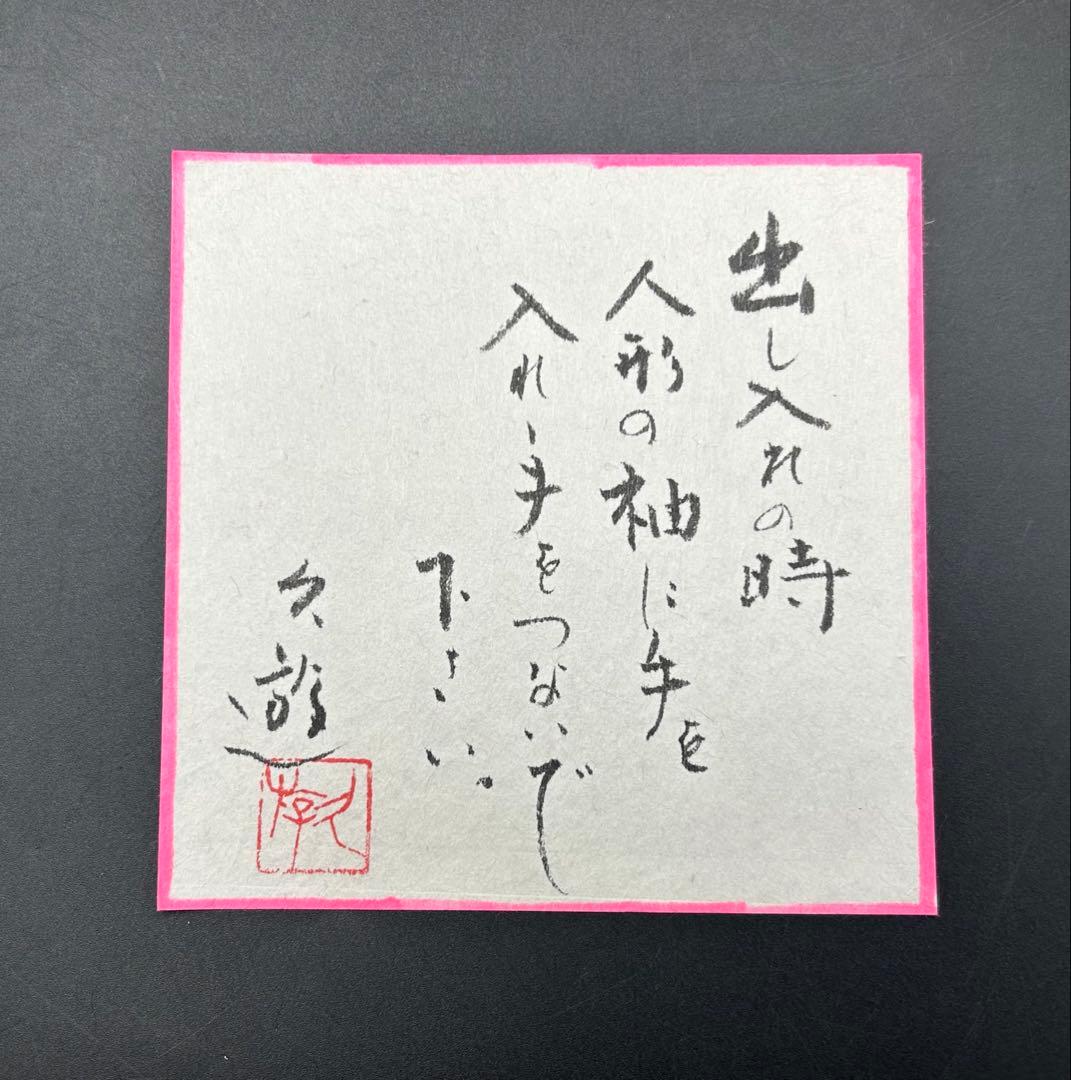 出し入れの時
人形の袖に手を
入れ、手をつないで
下さい。
久遊